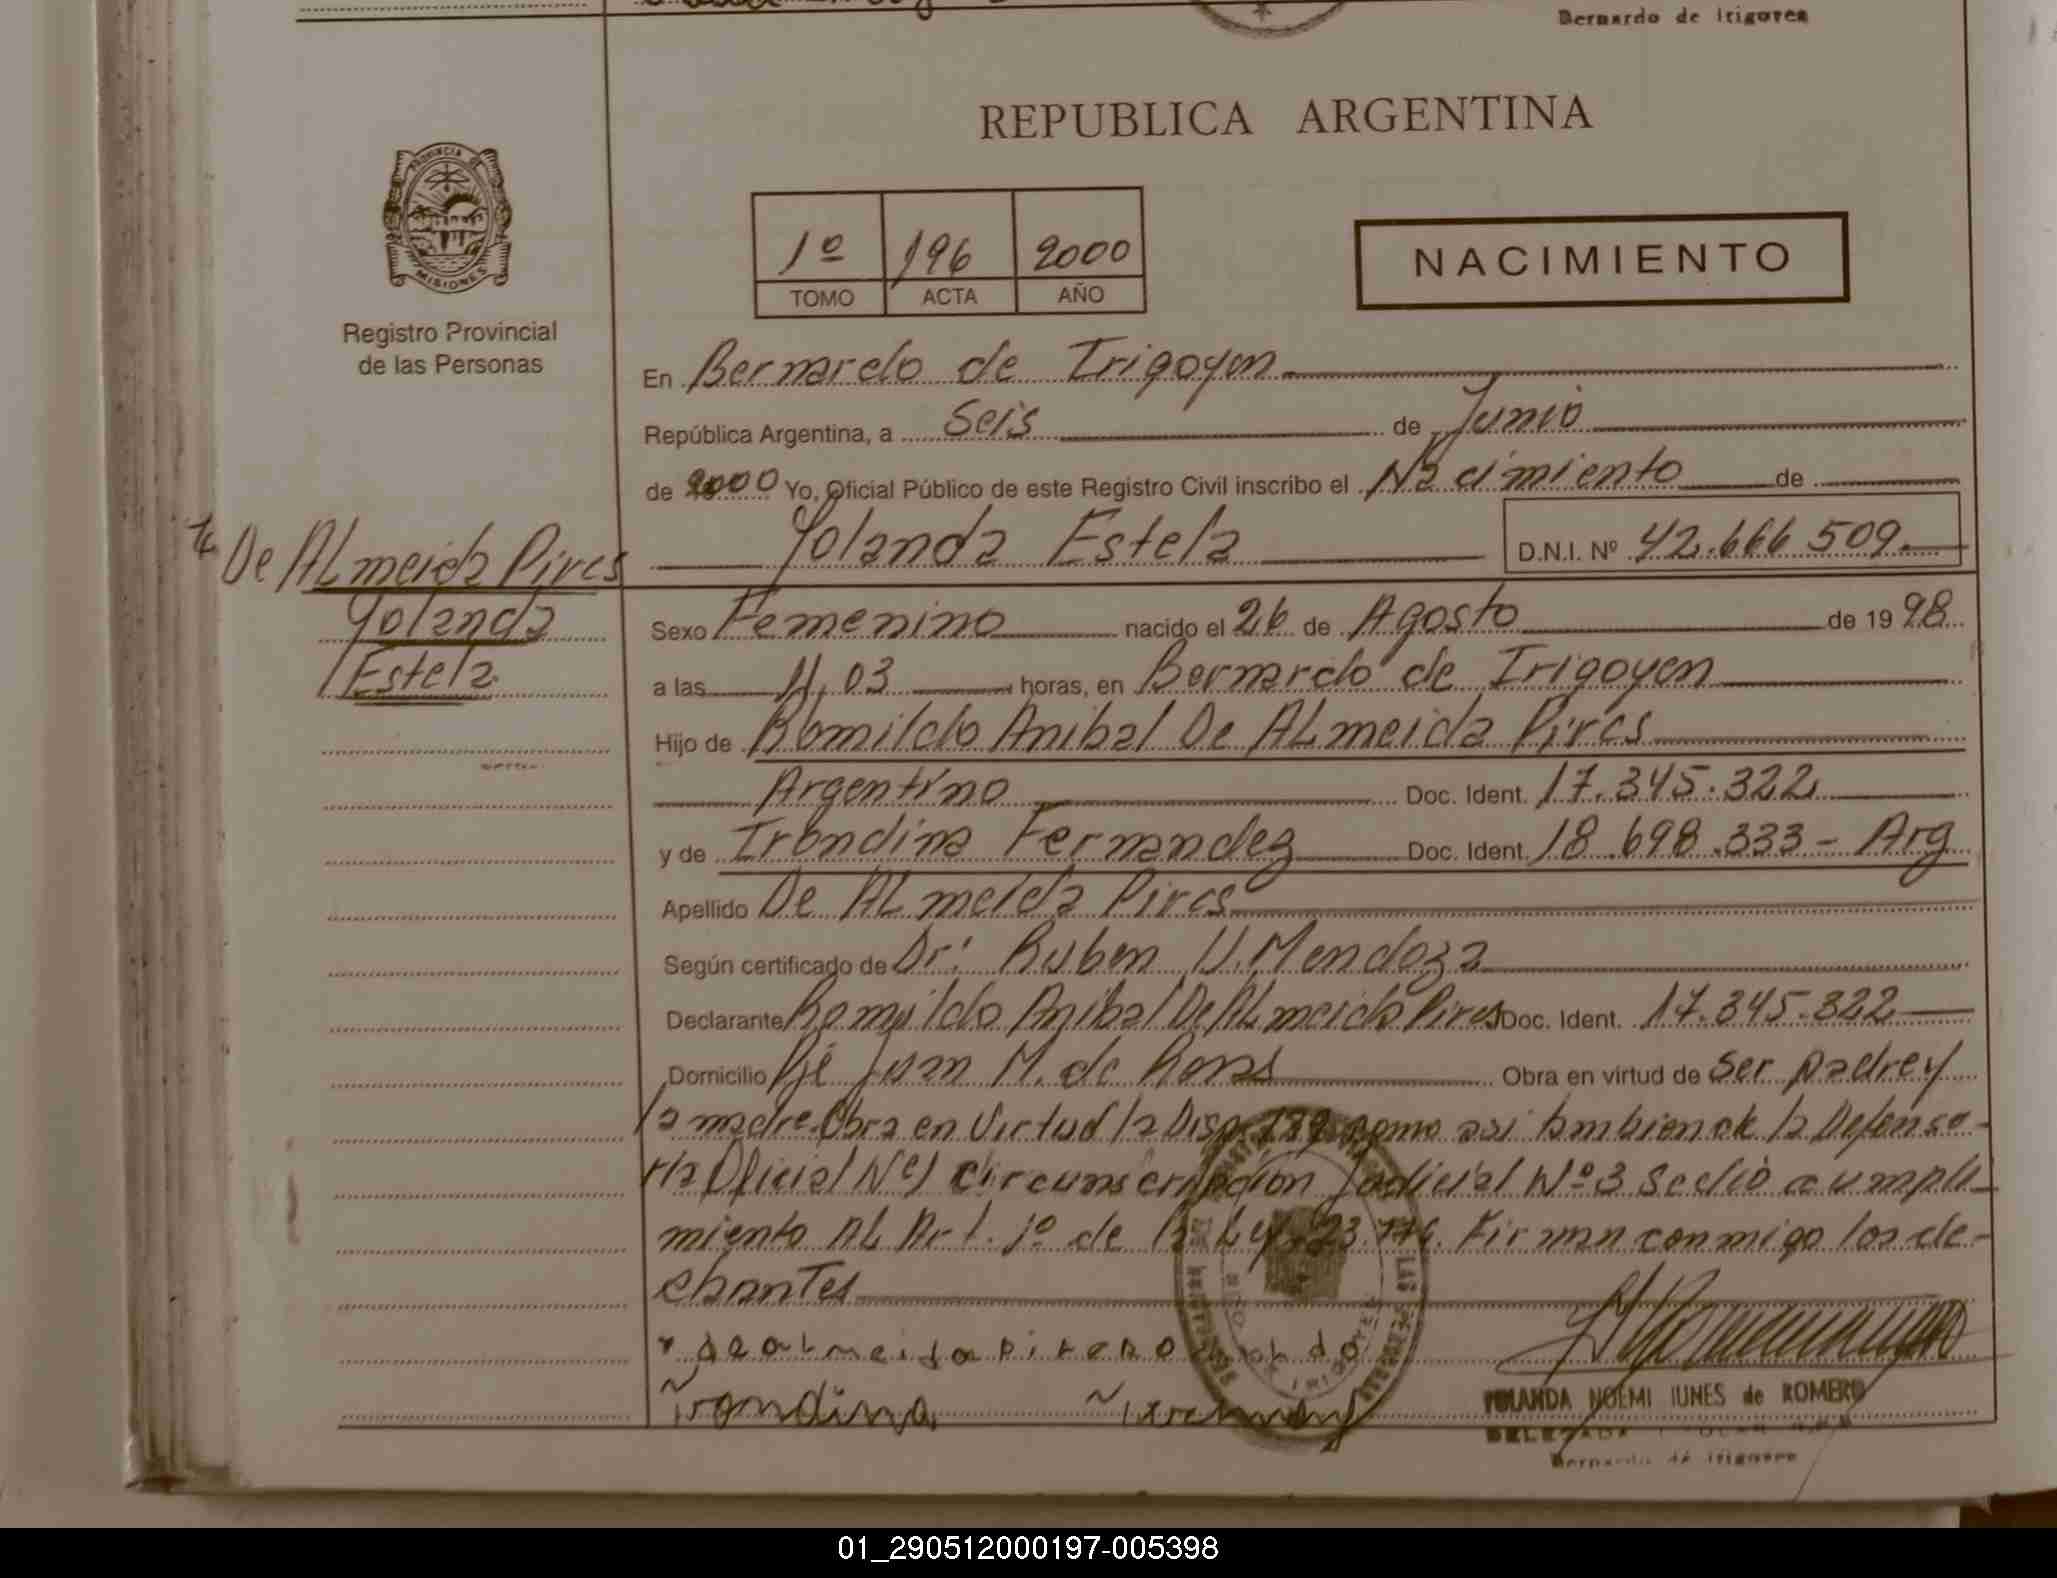 Bernardo de Irigoyen
REPUBLICA ARGENTINA
PROVINCIA DE
MISIONES
Registro Provincial
de las Personas
1º 196 2000
TOMO ACTA AÑO
NACIMIENTO
En Bernardo de Irigoyen
República Argentina, a Seis de Junio
de 2000 Yo, Oficial Público de este Registro Civil inscribo el Nacimiento de
De ALmeida Pires
Yolanda
Estela
Yolanda Estela D.N.I. Nº 42.666 509.
Sexo Femenino nacido el 26 de Agosto de 1998
a las 11,03 horas, en Bernardo de Irigoyen
Hijo de Romildo Anibal De ALmeida Pires
Argentino Doc. Ident. 17.345.322
y de Irondina Fernandez Doc. Ident. 18.698.333 - Arg
Apellido De ALmeida Pires
Según certificado de Dr: Ruben U. Mendoza
Declarante Romildo Anibal De ALmeida Pires Doc. Ident. 17.345.322
Domicilio Pje Juan M. de Rosas Obra en virtud de Ser padre y
la madre. Obra en Virtud la Disp. como asi tambien de la Defenso-
ria Oficial Nº1 circunscripcion Judicial Nº3 Se dió cumpli-
miento AL Art. 1º de la Ley 23.776. Firman conmigo los de-
clarantes
de almeida pires
Irondina
YOLANDA NOEMI IUNES de ROMERO
DELEGADA
Bernardo de Irigoyen
01_290512000197-005398